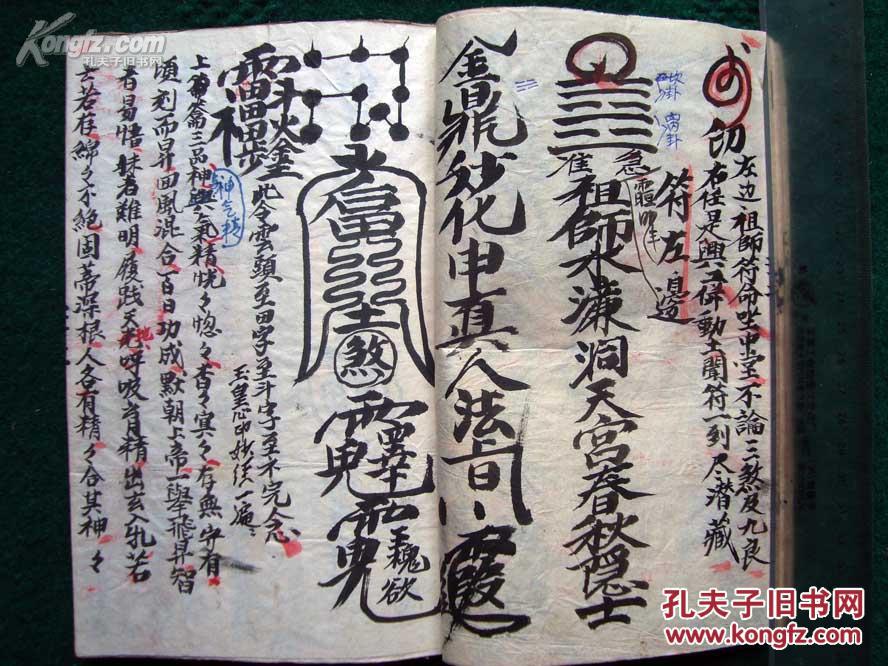 切左边祖師符命坐中堂不論三煞及九良
右任是興工俾動土闻符一到尽潜藏
符左邊
坎卦
离卦
急
准
祖師水濂洞天宮春秋隐士
金鼎妙化申真人法旨
魂欲
煞
斗火金
此令雲頭至田字至斗字至不完念
玉皇心印妙経一遍
上藥三品神與氣精恍々惚々杳々冥々存無守有
神气精
頃刻而昇回風混合百日功成默朝上帝一舉飛昇智
者易悟昧者難明履践天光呼吸育月精出玄入牝若
亡若存綿々不絕固蒂深根人各有精々合其神々
Kongfz.com
孔夫子旧书网
孔夫子旧书网
www.kongfz.com